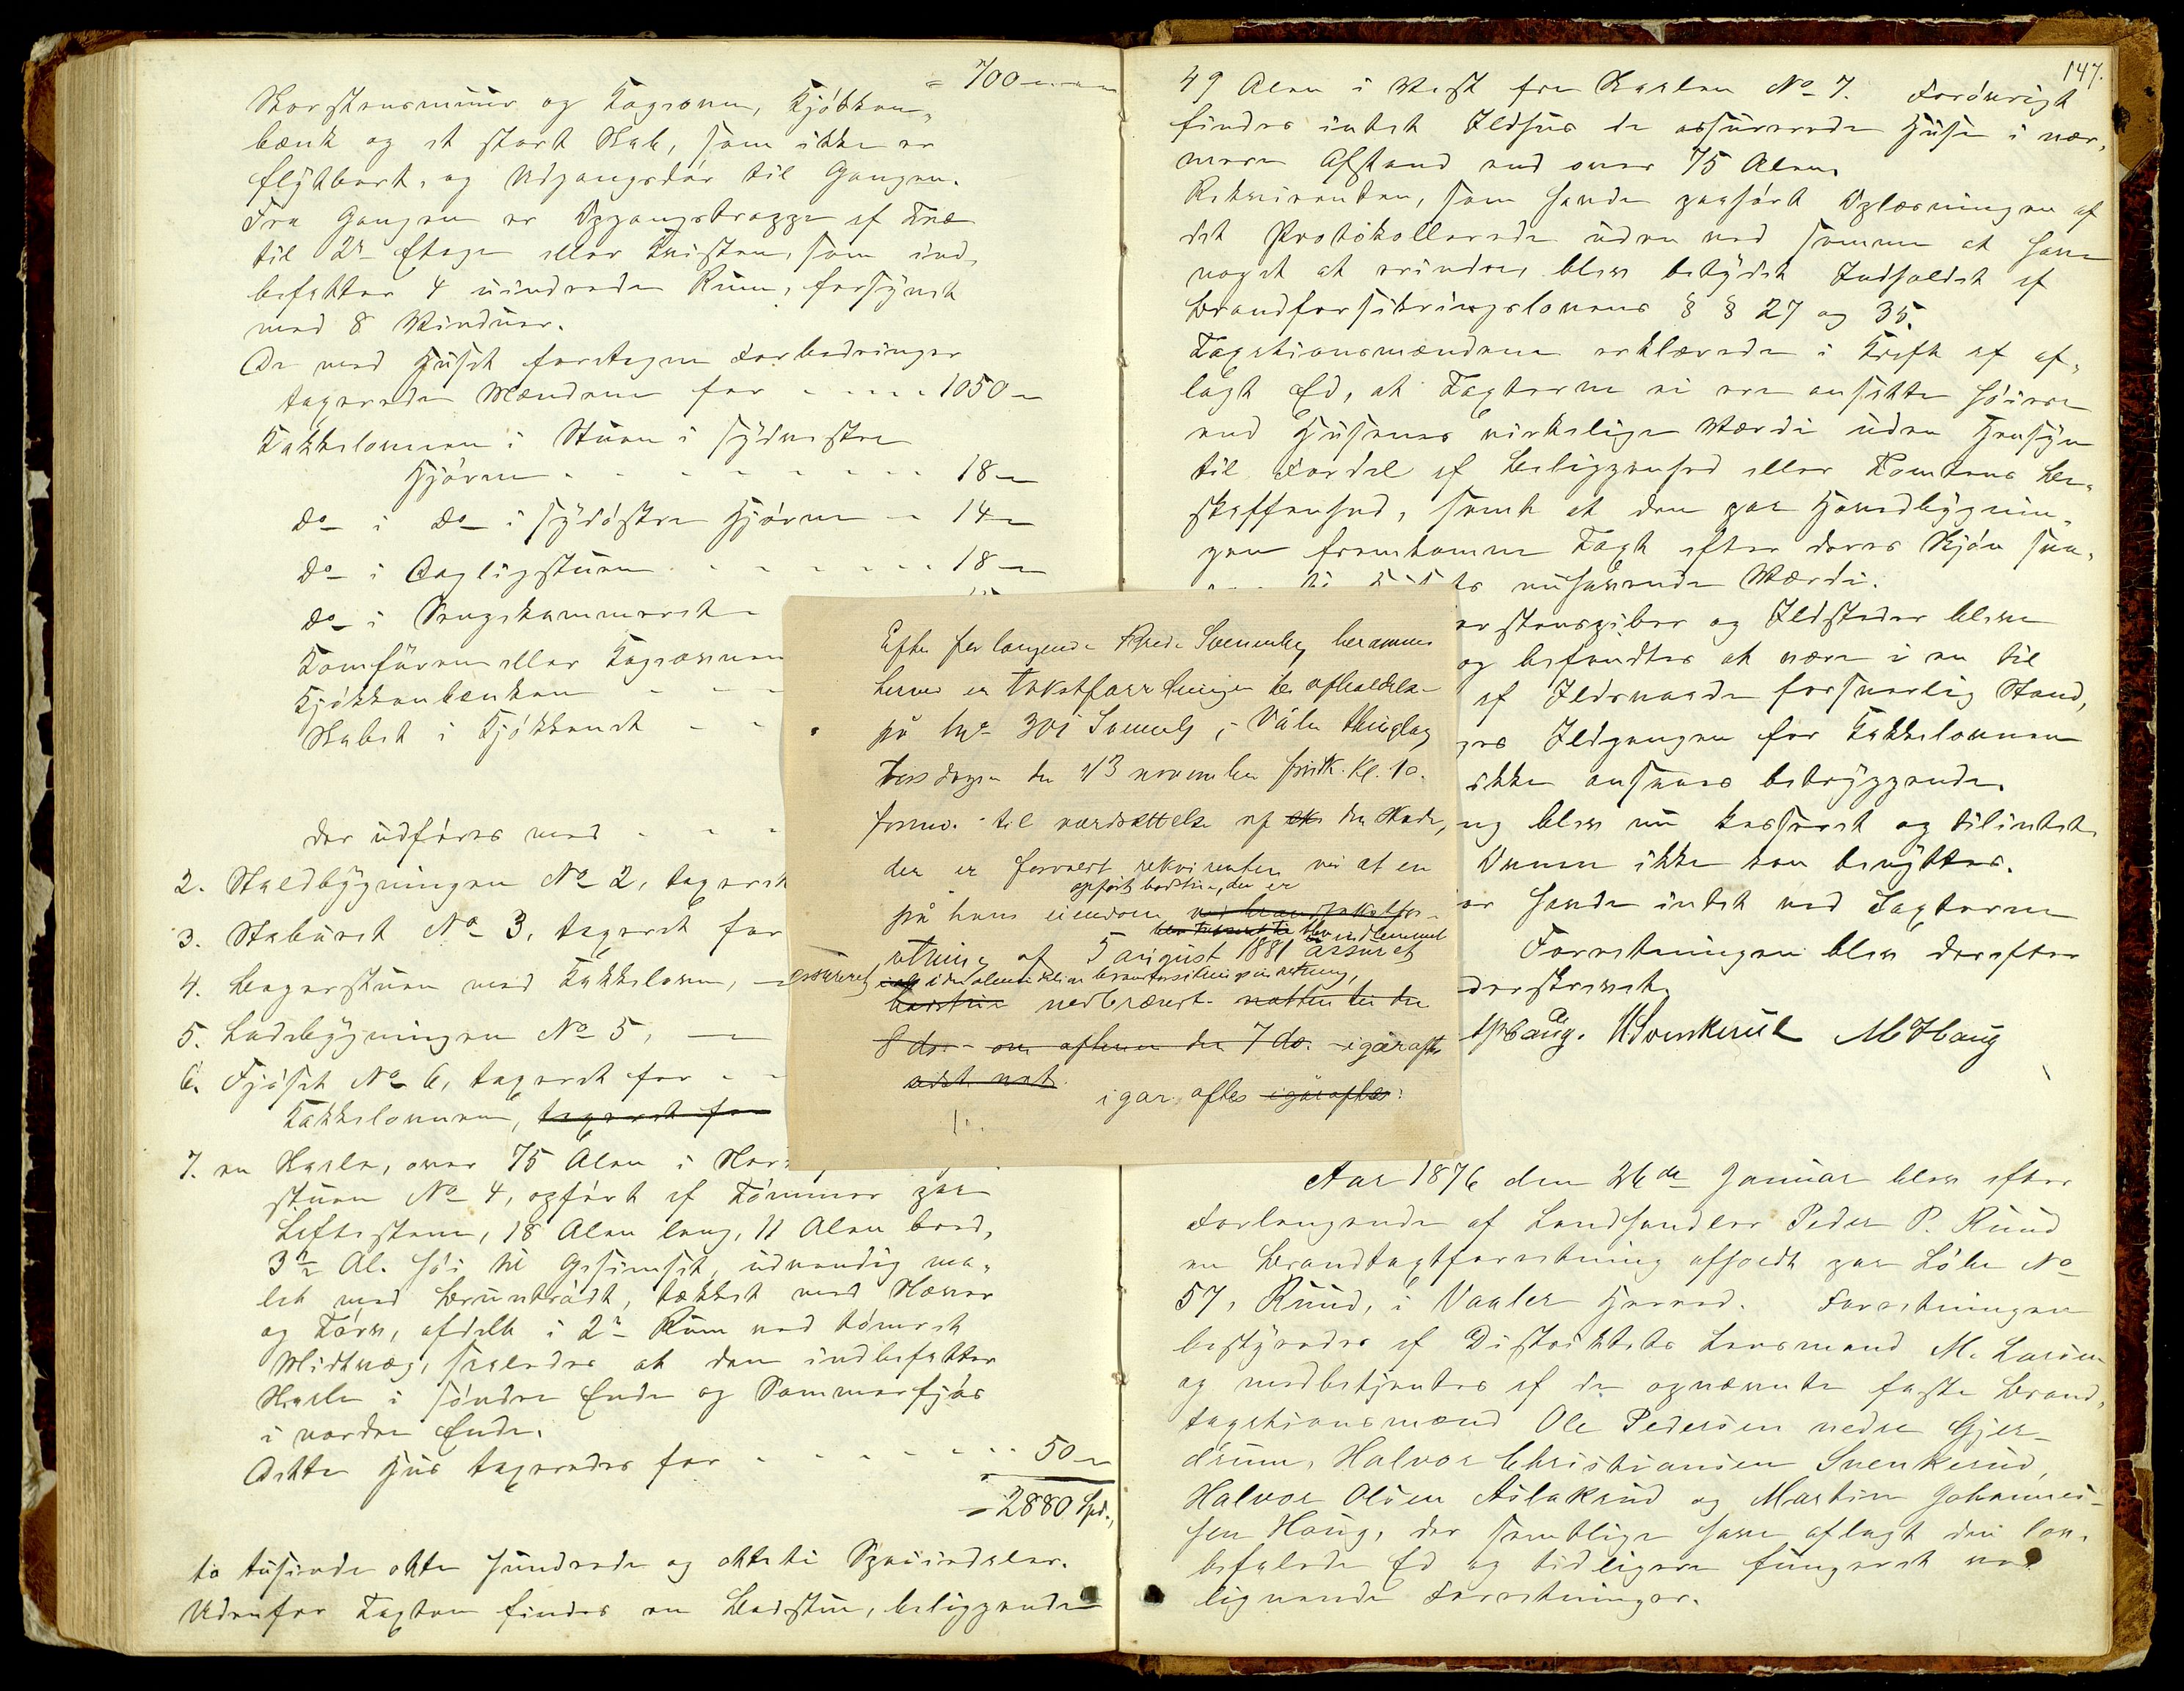 = 700 -
Skorstensmuur og Bagerovn, Kjøkken-
bænk og et stort Skab, som ikke er
flytbart, og Udgangsdør til Gangen.
Fra Gangen er Opgangstrappe af Træ
til 2n Etage eller Kvisten, som ind-
befatter 4 uindredede Rum, forsynet
med 8 Vinduer.
De med Huset foretagne Forbedringer
taxerede Mændene for - - - - 1050 -
Kakkelovnen i Stuen i sydvestre
Hjørne - - - - - - - - 18 -
Do i Do i sydøstre Hjørne - 14 -
Do i Dagligstuen - - - - - - 18 -
Do i Sengekammeret -
Komfuren eller
Kjøkkenbænken - - -
Skabet i Kjøkkenet - -
der udføres med - - -
2. Staldbygningen No 2, taxeret
3. Staburet No 3, taxeret for
4. Bagerstuen med Kakkelovn, -
5. Ladebygningen No 5, -
6. Fjøset No 6, taxeret for - -
Kakkelovnen, taxeret for
7. en Skaale, over 75 Alen i
stuen No 4, opført af Tømmer paa
Løftesteene, 18 Alen lang, 11 Alen bred,
3½ Al. høi til Gesimset, udvendig ma-
let med Bruunrødt, tækket med Næver
og Torv, afdelt i 2n Rum ved tømret
Midtvæg, saaledes at den indbefatter
Skaale i søndre Ende og Sommerfjøs
i nordre Ende.
Dette Hus taxeredes for - - - - - - 50 -
= 2880 Spd.,
to tusinde otte hundrede og otteti Speciedaler.
Udenfor Taxten findes en Badstue, beliggende
147.
49 Alen i Vest fra Skaalen No 7. Forøvrigt
findes intet Ildhus de assurerede Huse i nær-
mere Afstand end over 75 Alen.
Rekvirenten, som havde paahørt Oplæsningen af
det Protokollerede uden ved samme at have
noget at erindre, blev betydet Indholdet af
Brandforsikringslovens § § 27 og 35.
Taxationsmændene erklærede i Kraft af af-
lagt Ed, at Taxterne ei ere ansatte høiere
end Husenes virkelige Værdi uden Hensyn
til Fordel af Beliggenhed eller Tomtens Be-
skaffenhed, samt at den paa Hovedbygnin-
gen fremkomne Taxt efter deres Skjøn sva-
nuhavende Værdi.
stenspiber og Ildsteder bleve
og befandtes at være i en til
af Ildsvaade forsvarlig Stand,
Ildgangen for Kakkelovnen
ikke ansaaes betryggende.
blev nu kasseret og tilintet-
Ovnen ikke kan benyttes.
havde intet ved Taxterne
Forretningen blev derefter
derskrevet.
HSvenkerud MJHaug
Efter forlangende berammes
herved en takstforretning til afholdelse
på no 301 i Våler thinglag
torsdagen den 13 november førstk. kl. 10.
formd. til værdsættelse af den skade,
der er forvoldt rekvirenten ved at en
opført badstue, der er
på hans eiendom ved brandtakstfor-
indlemmet
retning af 5 august 1881 assuret
assureret i den almindelige brandforsikringsindretning,
badstue nedbrændt natten til den
8 ds. - om aftenen den 7 ds. - igåraftes
sidst nat.
igår aftes igåraftes.
Aar 1876 den 26de Januar blev efter
Forlangende af Landhandler Peder P. Ruud
en Brandtaxtforretning afholdt paa Løbe No
57, Ruud, i Vaaler Herred. Forretningen
bestyredes af Distriktets Lensmand M. Larsen
og medbetjentes af de opnævnte faste Brand-
taxationsmænd Ole Pedersen nedre Gjer-
drum, Halvor Christiansen Svenkerud,
Halvor Olsen Aslakrud og Martin Johannes-
sen Haug, der samtlige have aflagt den lov-
befalede Ed og tidligere fungeret ved
lignende Forretninger.